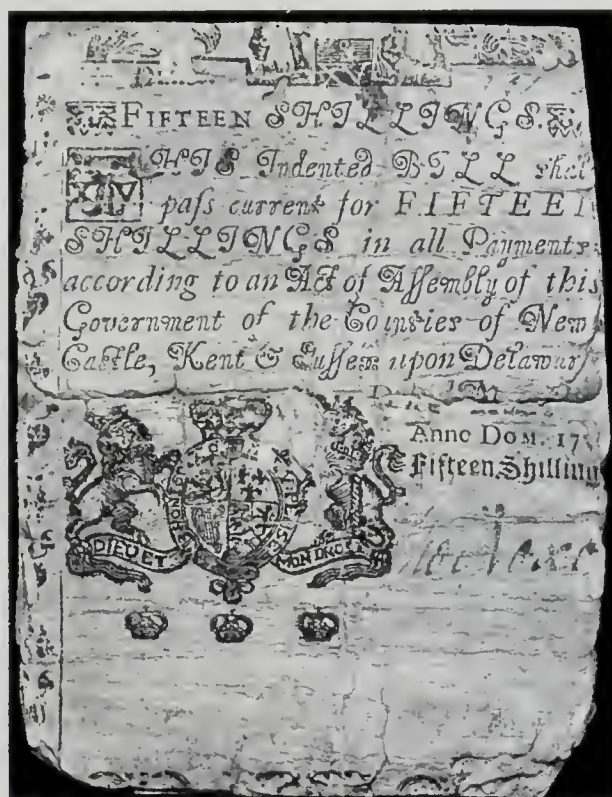 FIFTEEN SHILLINGS.
XV
THIS Indented BILL shal
paſs current for FIFTEEN
SHILLINGS in all Payments
according to an Act of Aſſembly of this
Government of the Counties of New
Caſtle, Kent & Suſſex upon Delawar
Anno DOM. 17
Fifteen Shilling
HONI
DIEU ET
MON DROIT